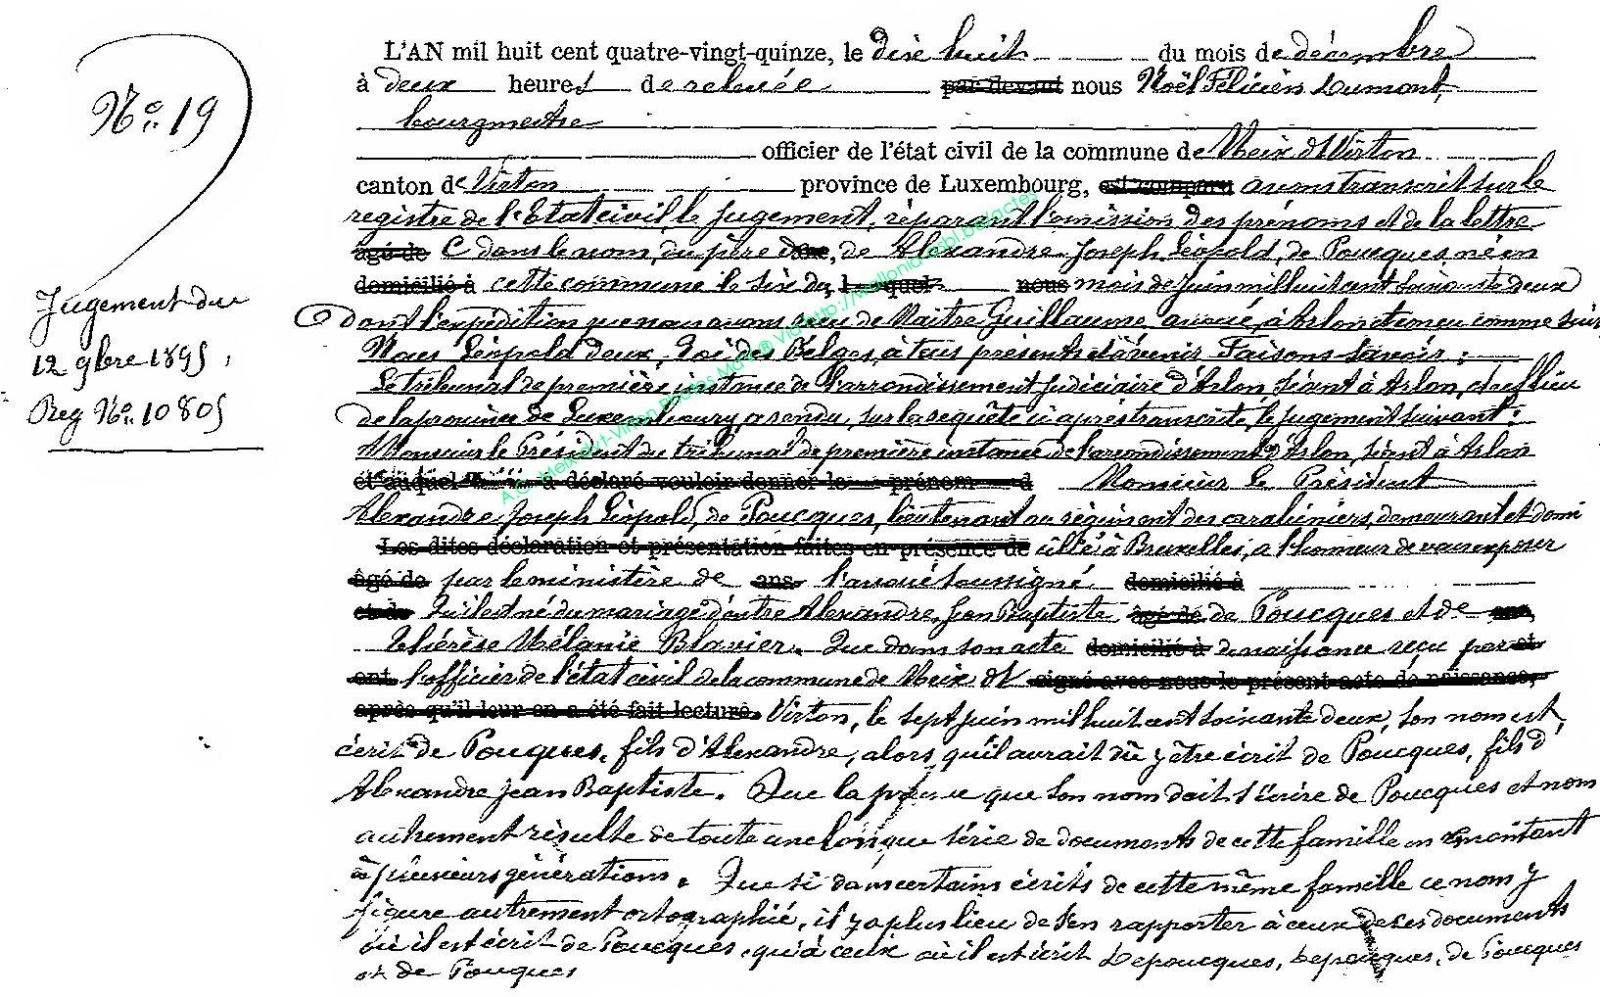 N° 19
Jugement du
12 9bre 1895,
Reg N° 10805
L'AN mil huit cent quatre-vingt-quinze, le dix huit du mois de décembre
à deux heures de relevée par devant nous Noël Félicien Dumont,
bourgmestre
officier de l'état civil de la commune de Meix dt Virton
canton de Virton province de Luxembourg, est comparu avons transcrit sur le
registre de l'Etat civil le jugement, réparant l'omission des prénoms et de la lettre
âgé de C dans le nom, du père de Alexandre Joseph Léopold, de Poucques né en
domicilié à cette commune le six du lequel nous mois de juin mil huit cent soixante deux
dont l'expédition que nous avons reçu de Maître Guillaume avoué, à Arlon et conçu comme suit
Nous Léopold deux, Roi des Belges, à tous présents et à venir Faisons savoir :
Le tribunal de première instance de l'arrondissement judiciaire d'Arlon, séant à Arlon, chef lieu
de la province de Luxembourg, a rendu, sur la requête ci après transcrite, le jugement suivant :
Monsieur le Président du tribunal de première instance de l'arrondissement d'Arlon, séant à Arlon
et auquel a déclaré vouloir donner le prénom d Monsieur Le Président
Alexandre Joseph Léopold, de Poucques, lieutenant au régiment des carabiniers, demeurant et domi
Les dites déclaration et présentation faites en présence de cilié à Bruxelles, a l'honneur de vous exposer
âgé de par le ministère de ans l'avoué soussigné domicilié à
et de Qu'il est né du mariage d'entre Alexandre, Jean Baptiste âgé de de Poucques et de ans,
Thérèse Mélanie Blavier. Que dans son acte domicilié à de naissance reçu par et
ont l'officier de l'état civil de la commune de Meix dt signé avec nous le présent acte de naissance,
après qu'il leur en a été fait lecture. Virton, le sept juin mil huit cent soixante deux, son nom est
écrit de Pouques, fils d'Alexandre, alors qu'il aurait dû y être écrit de Poucques, fils d'
Alexandre Jean Baptiste. Que la preuve que son nom doit s'écrire de Poucques et non
autrement résulte de toute une longue série de documents de cette famille en remontant
à plusieurs générations. Que si dans certains écrits de cette même famille ce nom y
figure autrement ortographié, il y a plus lieu de s'en rapporter à ceux de ces documents
où il est écrit de Poucques, qu'à ceux où il est écrit Depoucques, de Poucques
et de Pouques